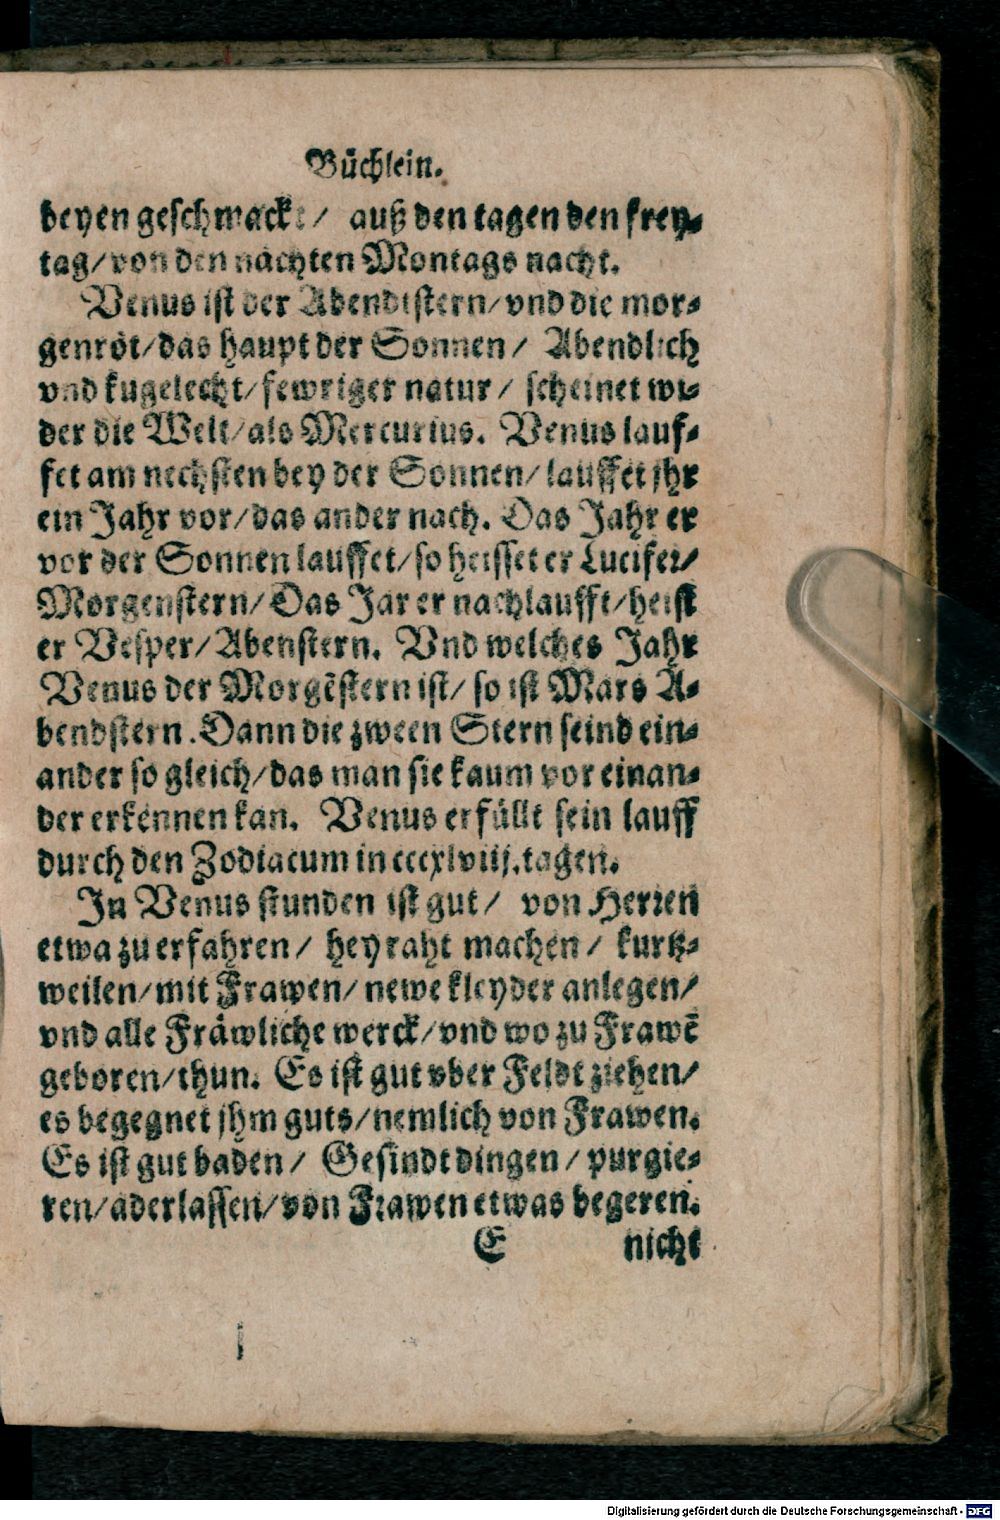 Büchlein.
beyen geschmackt / auß den tagen den frey-
tag/von den nächten Montags nacht.
Venus ist der Abendtstern/vnd die mor-
genröt/das haupt der Sonnen / Abendlich
vnd kugelecht/fewriger natur / scheinet wi-
der die Welt/als Mercurius. Venus lauf-
fet am nechsten bey der Sonnen/lauffet jhr
ein Jahr vor/das ander nach. Das Jahr er
vor der Sonnen lauffet/so heisset er Lucifer/
Morgenstern/Das Jar er nachlaufft/heist
er Vesper/Abenstern. Vnd welches Jahr
Venus der Morgẽstern ist/ so ist Mars A-
bendstern. Dann die zween Stern seind ein-
ander so gleich/das man sie kaum vor einan-
der erkennen kan. Venus erfüllt sein lauff
durch den Zodiacum in cccxlviij.tagen.
In Venus stunden ist gut / von Herren
etwa zu erfahren / heyraht machen / kurtz-
weilen/mit Frawen/newe kleyder anlegen/
vnd alle Fräwliche werck/vnd wo zu Frawẽ
geboren/thun. Es ist gut vber Feldt ziehen/
es begegnet jhm guts/nemlich von Frawen.
Es ist gut baden / Gesindt dingen / purgie-
ren/aderlassen/von Frawen etwas begeren.
E nicht
Digitalisierung gefördert durch die Deutsche Forschungsgemeinschaft - DFG